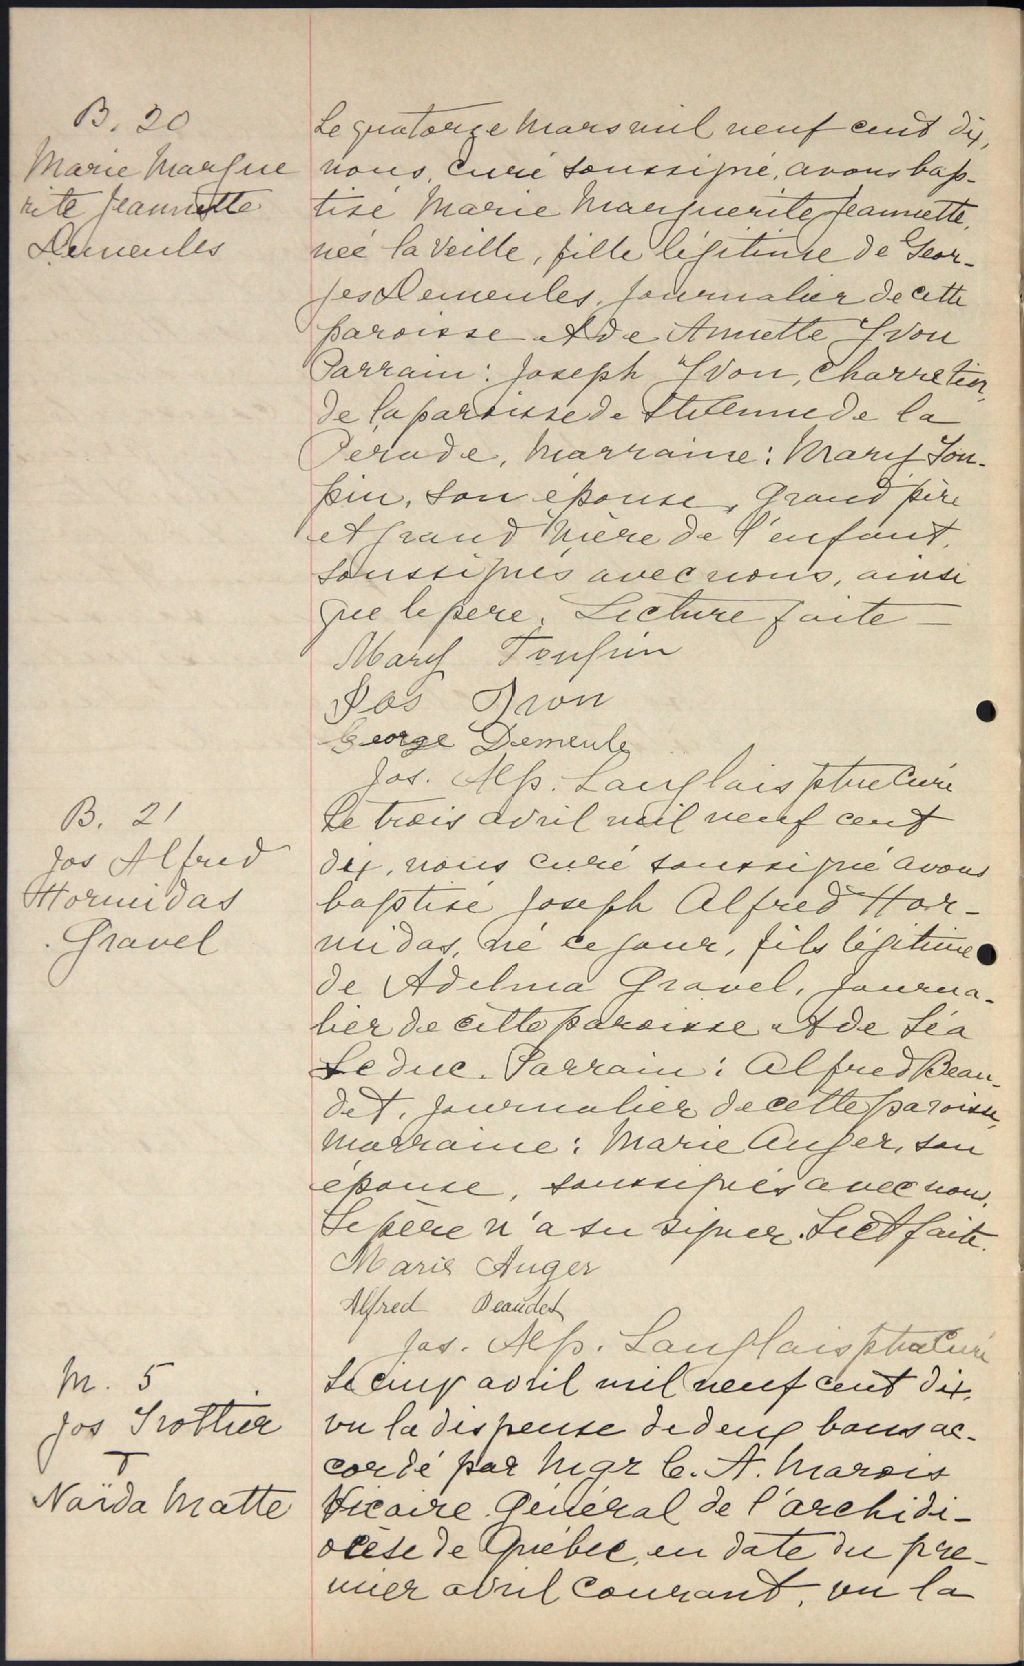 B. 20
Marie Margue
rite Jeannette
Demeules
Le quatorze Mars mil neuf cent dix,
nous, Curé soussigné, avons bap-
tisé Marie Marguerite Jeannette,
née la veille, fille légitime de Geor-
ges Demeules, journalier de cette
paroisse et de Annette Yvon
Parrain: Joseph Yvon, charretier,
de la paroisse de Ste Anne de la
Pérade, Marraine: Mary Tou-
pin, son épouse, grand père
et grand mère de l'enfant,
soussignés avec nous, ainsi
que le père. Lecture faite —
Mary Toupin
Jos Yvon
George Demeule
Jos. Alp. Langlais ptre Curé
B. 21
Jos Alfred
Hormidas
Gravel
Le trois avril mil neuf cent
dix, nous curé soussigné avons
baptisé Joseph Alfred Hor-
midas, né ce jour, fils légitime
de Adelma Gravel, journa-
lier de cette paroisse et de Léa
Leduc. Parrain: Alfred Beau-
det, journalier de cette paroisse,
marraine: Marie Auger, son
épouse, soussignés avec nous.
Le père n'a su signer. Lect faite.
Marie Auger
Alfred Beaudet
Jos. Alp. Langlais ptre Curé
M. 5
Jos Trottier
&
Naïda Matte
Le cinq avril mil neuf cent dix,
vu la dispense de deux bans ac-
cordé par Mgr C. A. Marois
Vicaire Général de l'archidi-
ocèse de Québec, en date du pre-
mier avril courant, vu la